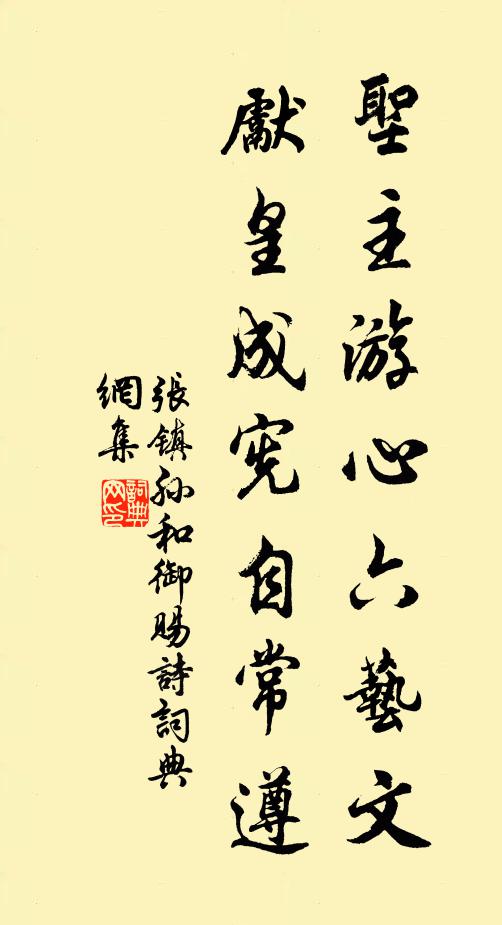 聖主游心六藝文
獻皇成憲自常遵
張鎮孫和御賜詩詞典
網集
詞典
网印